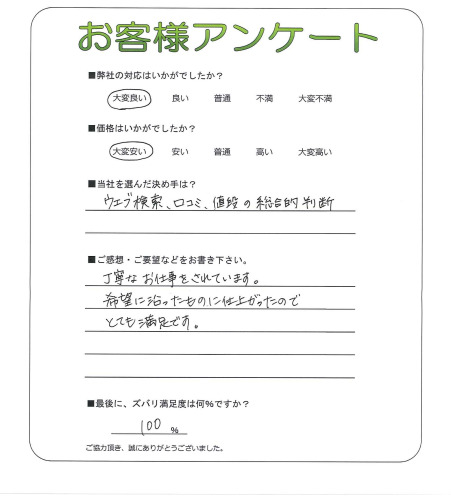 お客様アンケート
■弊社の対応はいかがでしたか？
大変良い 良い 普通 不満 大変不満
■価格はいかがでしたか？
大変安い 安い 普通 高い 大変高い
■当社を選んだ決め手は？
ウェブ検索、口コミ、値段の総合的判断
■ご感想・ご要望などをお書き下さい。
丁寧なお仕事をされています。
希望に沿ったものに仕上がったので
とても満足です。
■最後に、ズバリ満足度は何%ですか？
100 %
ご協力頂き、誠にありがとうございました。